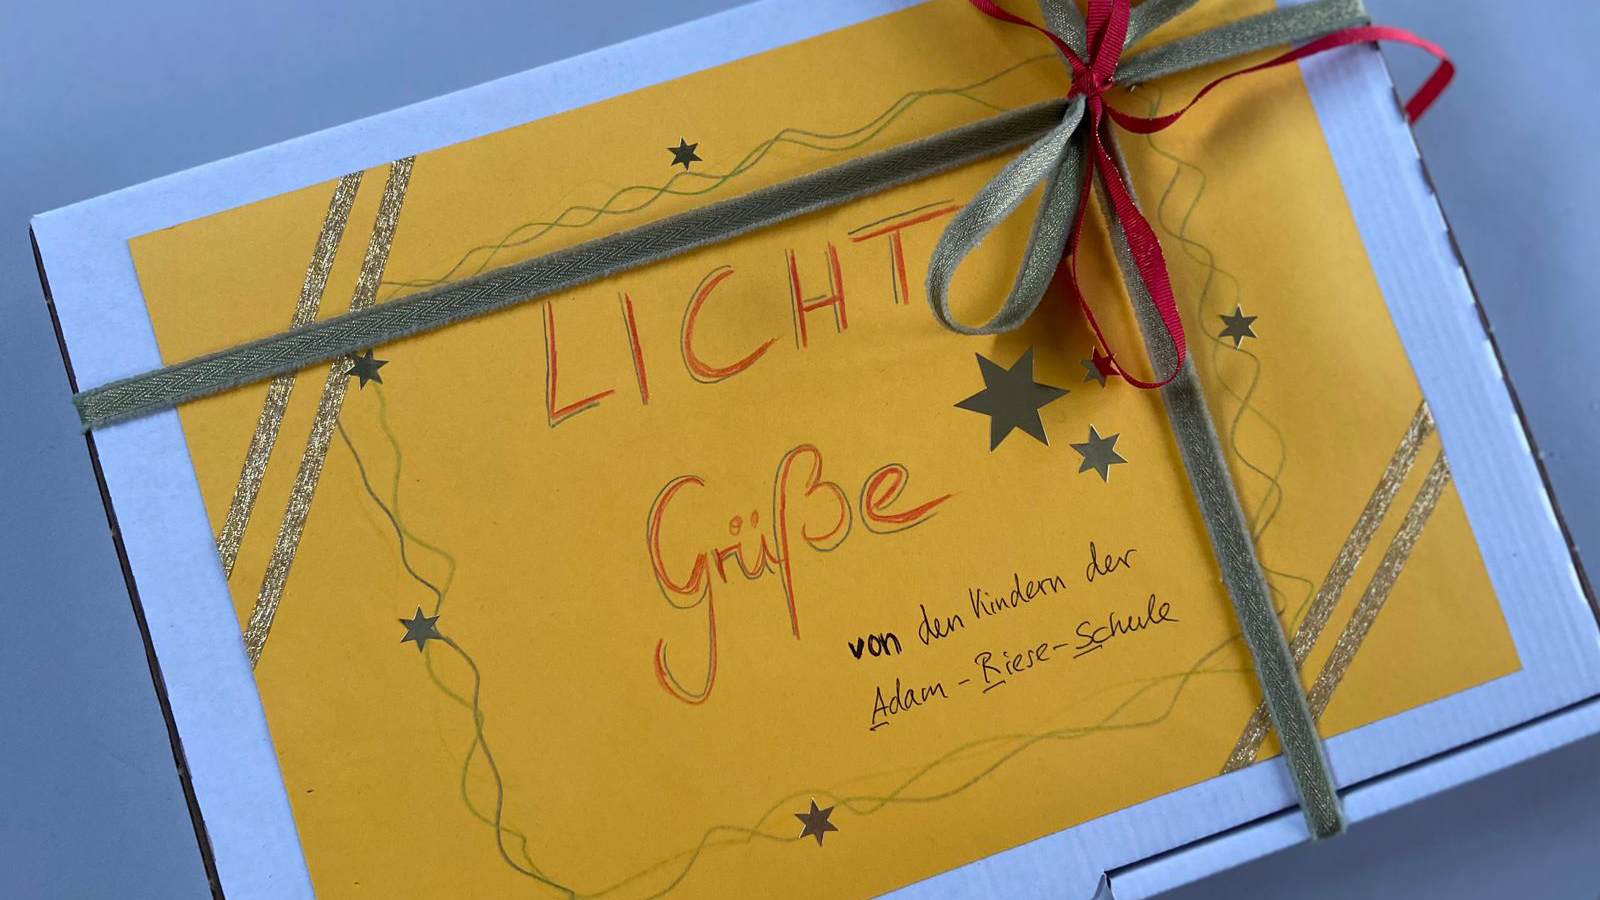 LICHT
Grüße
von den Kindern der
Adam-Riese-Schule